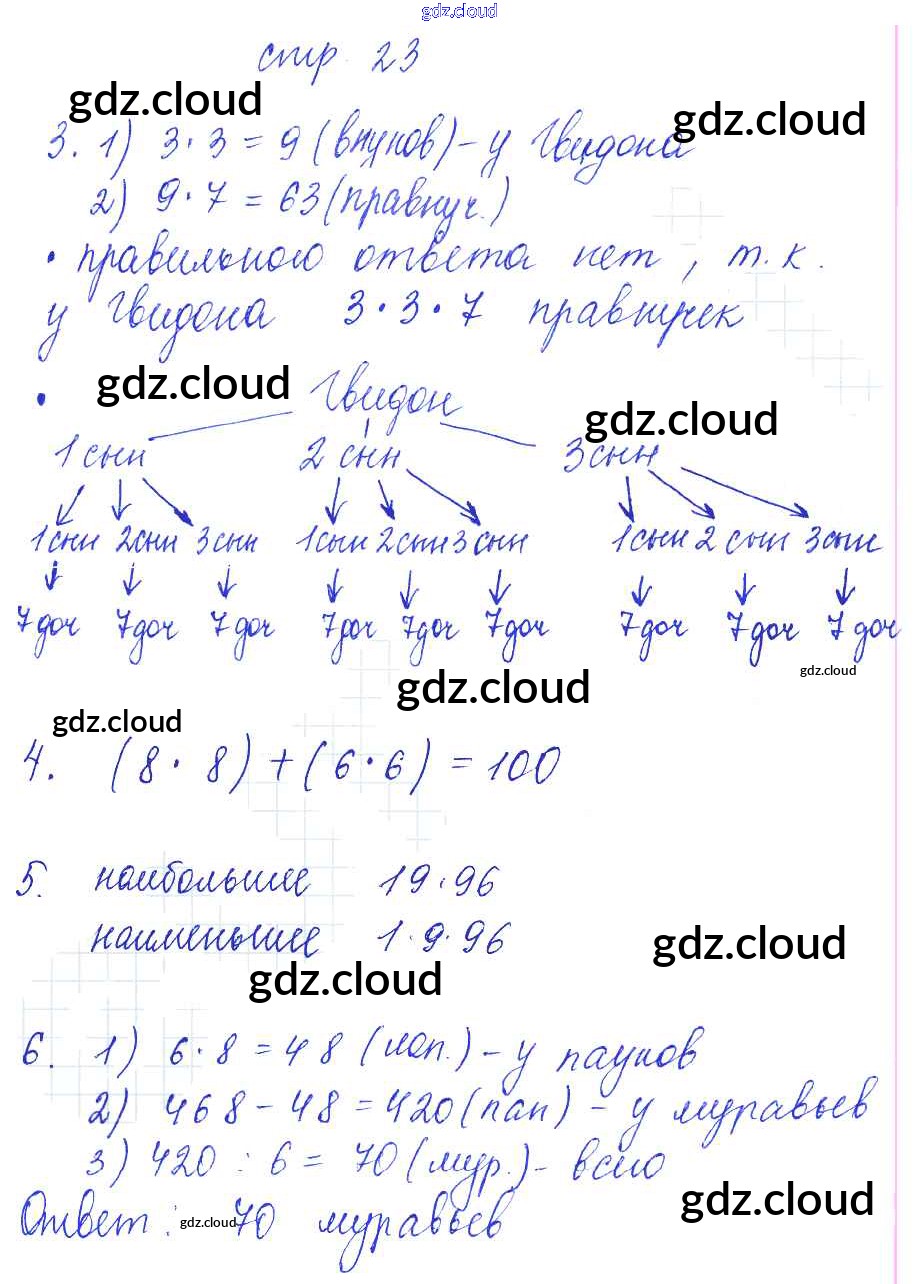 gdz.cloud
стр. 23
gdz.cloud
gdz.cloud
3. 1) 3·3 = 9 (внуков) – у Гвидона
2) 9·7 = 63 (правнуч.)
• правильного ответа нет, т.к.
у Гвидона 3·3·7 правнучек
gdz.cloud
• Гвидон
gdz.cloud
1 сын 2 сын 3 сын
1 сын 2 сын 3 сын 1 сын 2 сын 3 сын 1 сын 2 сын 3 сын
7 доч 7 доч 7 доч 7 доч 7 доч 7 доч 7 доч 7 доч 7 доч
gdz.cloud
gdz.cloud
gdz.cloud
4. (8·8)+(6·6) = 100
5. наибольшее 19·96
наименьшее 1·9·96
gdz.cloud
gdz.cloud
6. 1) 6·8 = 48 (лап.) – у пауков
2) 468 – 48 = 420 (лап) – у муравьев
3) 420 : 6 = 70 (мур.) – всего
gdz.cloud
Ответ: 70 муравьев
gdz.cloud